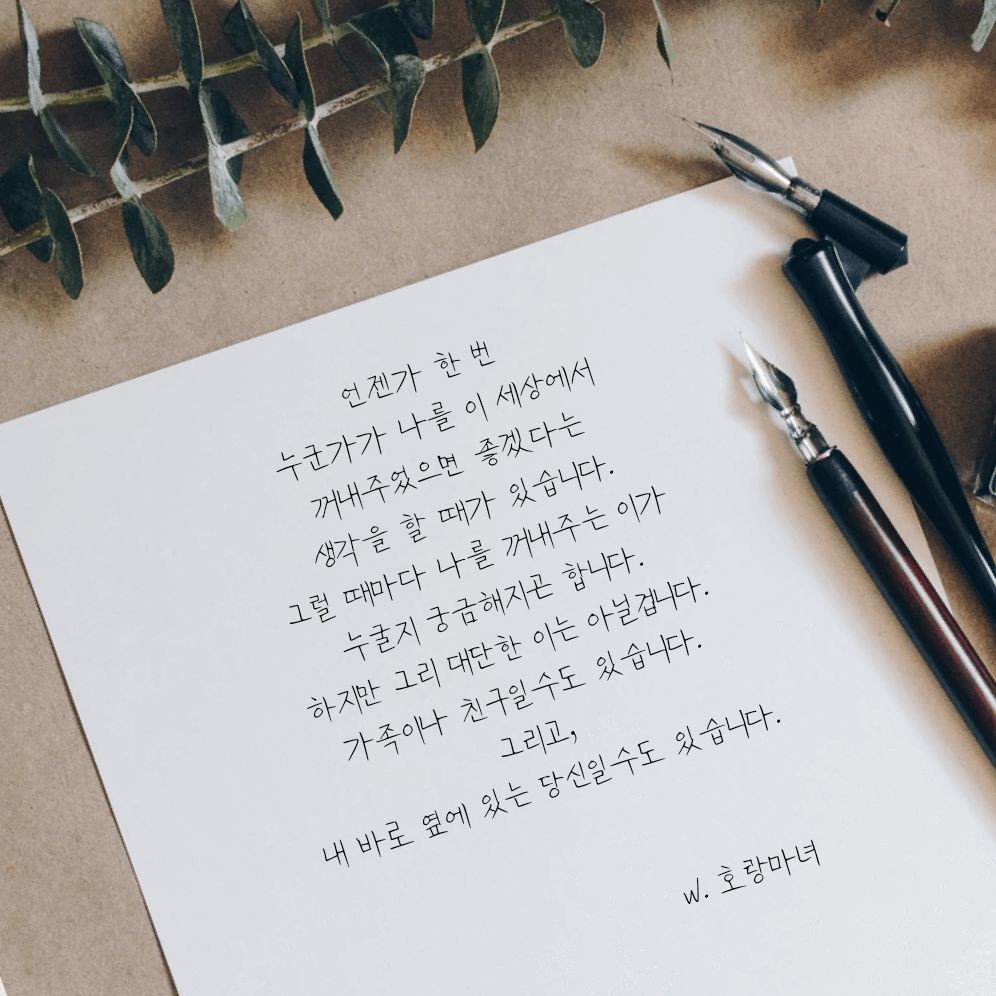 언젠가 한 번
누군가가 나를 이 세상에서
꺼내주었으면 좋겠다는
생각을 할 때가 있습니다.
그럴 때마다 나를 꺼내주는 이가
누굴지 궁금해지곤 합니다.
하지만 그리 대단한 이는 아닐겁니다.
가족이나 친구일수도 있습니다.
그리고,
내 바로 옆에 있는 당신일수도 있습니다.
w. 호랑마녀